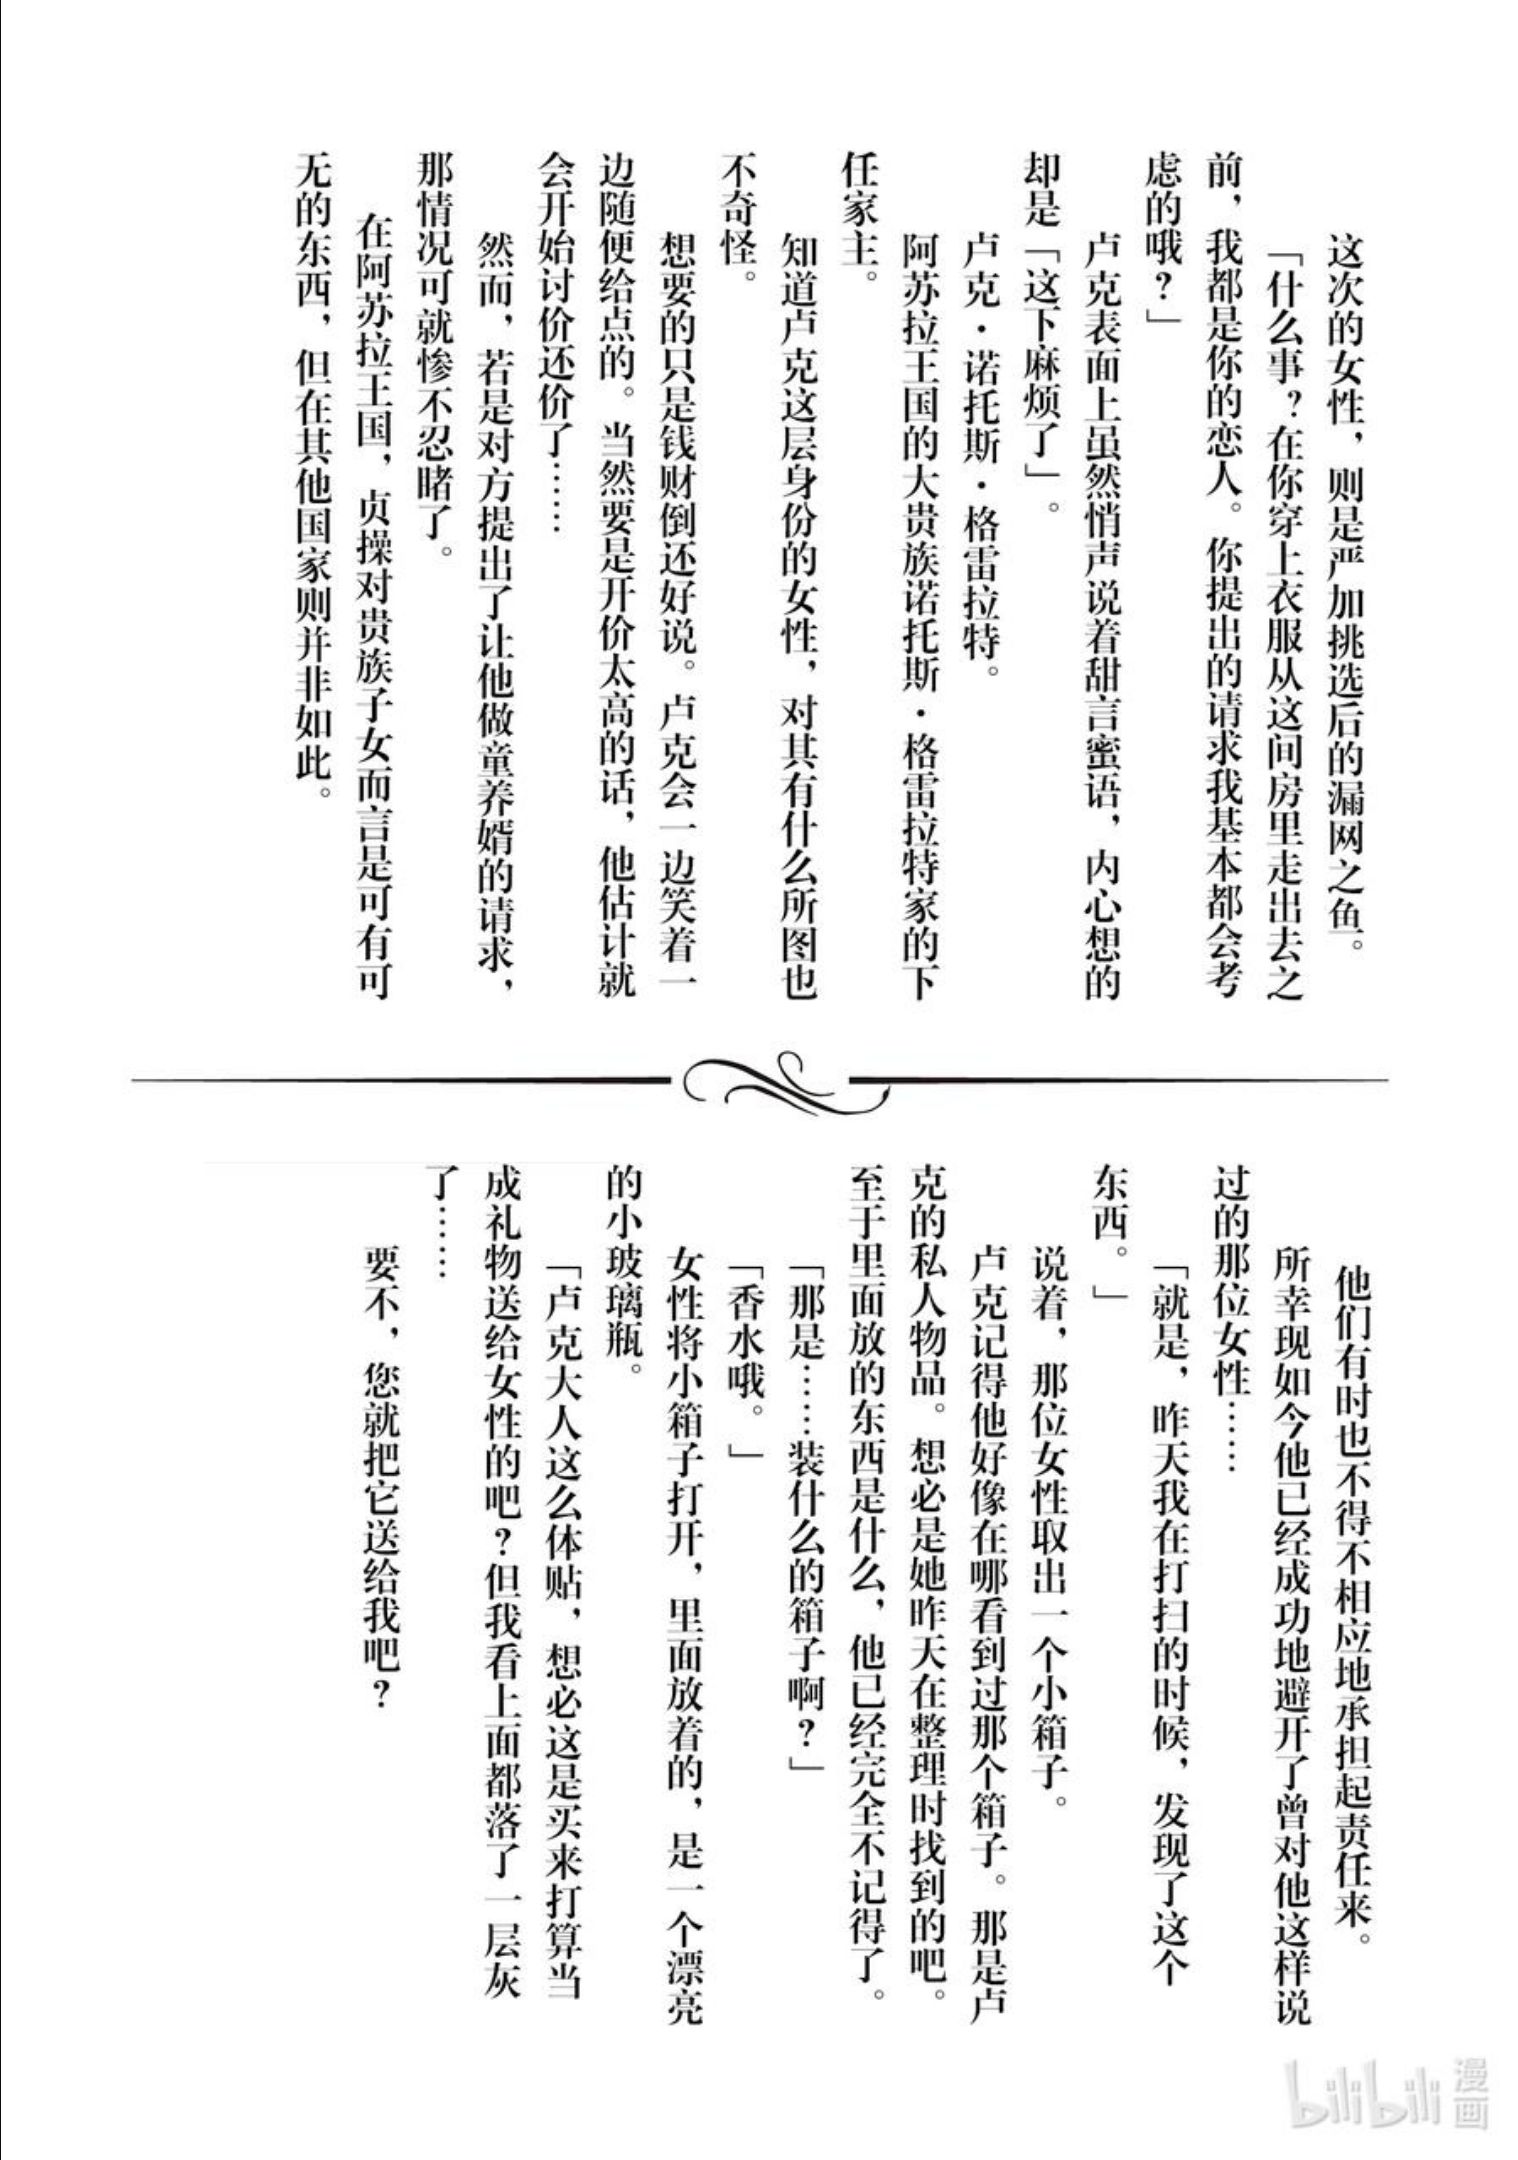 这次的女性，则是严加挑选后的漏网之鱼。
「什么事？在你穿上衣服从这间房里走出去之
前，我都是你的恋人。你提出的请求我基本都会考
虑的哦？」
卢克表面上虽然悄声说着甜言蜜语，内心想的
却是「这下麻烦了」。
卢克·诺托斯·格雷拉特。
阿苏拉王国的大贵族诺托斯·格雷拉特家的下
任家主。
知道卢克这层身份的女性，对其有什么所图也
不奇怪。
想要的只是钱财倒还好说。卢克会一边笑着一
边随便给点的。当然要是开价太高的话，他估计就
会开始讨价还价了……
然而，若是对方提出了让他做童养婿的请求，
那情况可就惨不忍睹了。
在阿苏拉王国，贞操对贵族子女而言是可有可
无的东西，但在其他国家则并非如此。
他们有时也不得不相应地承担起责任来。
所幸现如今他已经成功地避开了曾对他这样说
过的那位女性……
「就是，昨天我在打扫的时候，发现了这个
东西。」
说着，那位女性取出一个小箱子。
卢克记得他好像在哪看到过那个箱子。那是卢
克的私人物品。想必是她昨天在整理时找到的吧。
至于里面放的东西是什么，他已经完全不记得了。
「那是……装什么的箱子啊？」
「香水哦。」
女性将小箱子打开，里面放着的，是一个漂亮
的小玻璃瓶。
「卢克大人这么体贴，想必这是买来打算当
成礼物送给女性的吧？但我看上面都落了一层灰
了……
要不，您就把它送给我吧？
bilibili 漫画